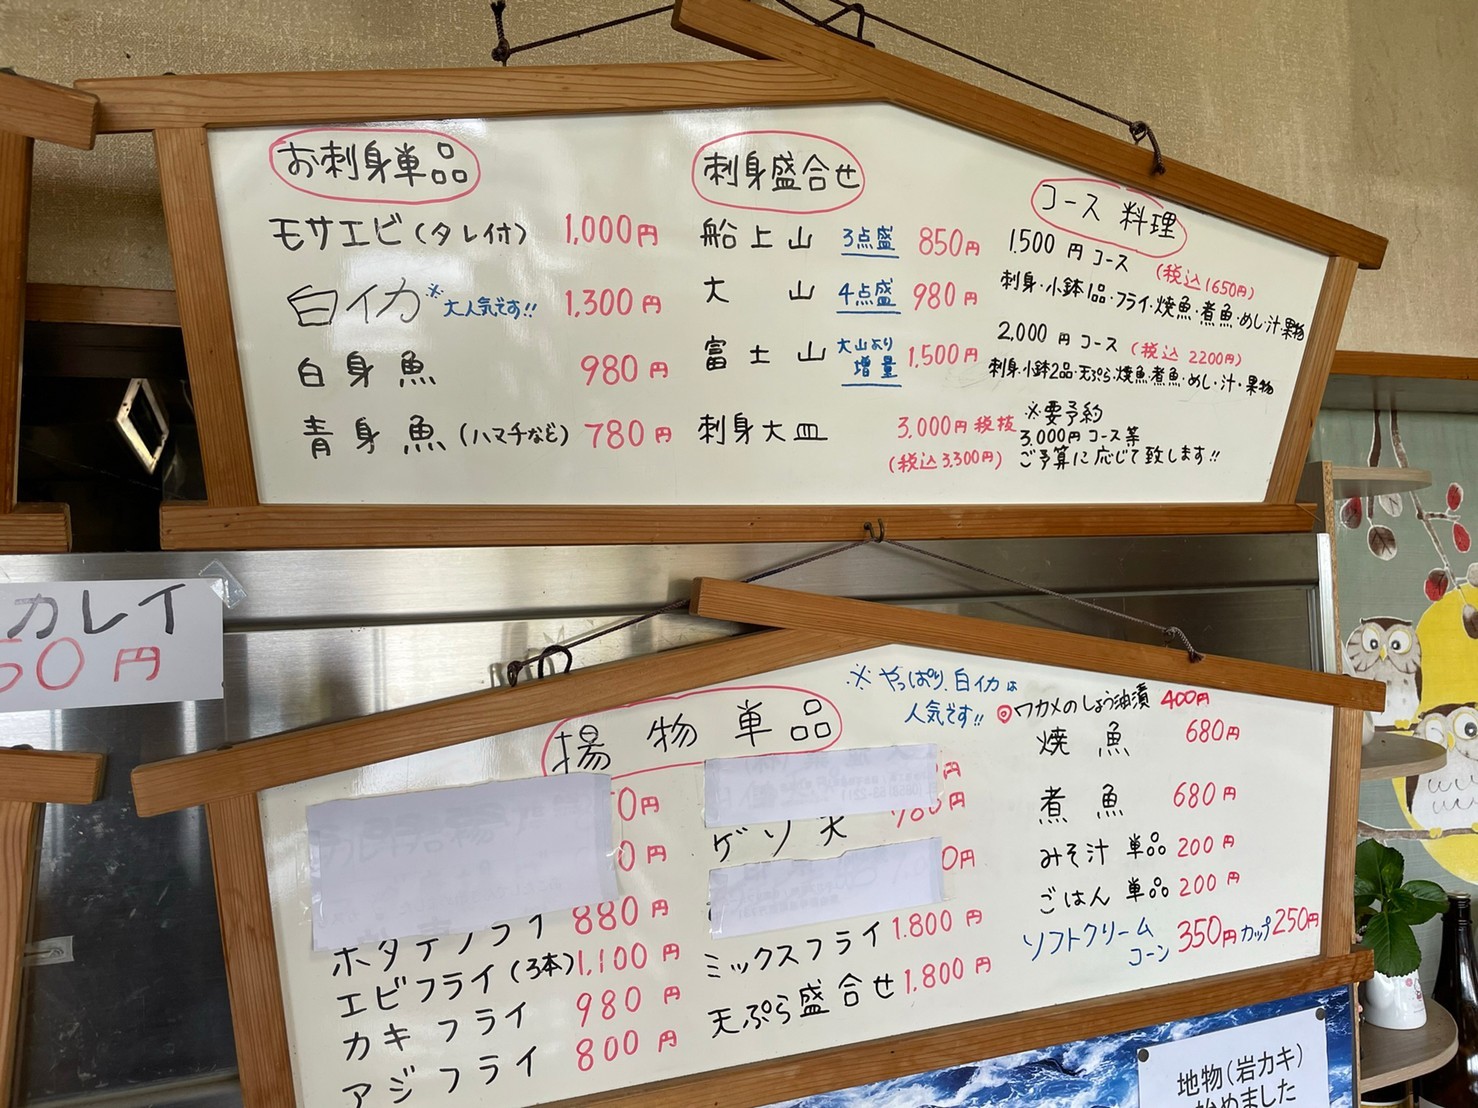 お刺身単品
モサエビ(タレ付) 1,000円
白イカ ※大人気です!! 1,300円
白身魚 980円
青身魚(ハマチなど) 780円
刺身盛合せ
船上山 3点盛 850円
大山 4点盛 980円
富士山 大山より増量 1,500円
刺身大皿 3,000円税抜
(税込3,300円)
コース料理
1.500円コース
(税込1650円)
刺身・小鉢1品・フライ・焼魚・煮魚・めし・汁・果物
2,000円コース(税込2200円)
刺身・小鉢2品・天ぷら・焼魚・煮魚・めし・汁・果物
※要予約
3,000円コース等
ご予算に応じて致します!!
カレイ
50円
揚物単品
0円
0円
ホタテフライ 880円
エビフライ(3本) 1,100円
カキフライ 980円
アジフライ 800円
※やっぱり、白イカは
人気です!!
円
ゲソ天 980円
0円
ミックスフライ 1.800円
天ぷら盛合せ 1.800円
◎ワカメのしょう油漬 400円
焼魚 680円
煮魚 680円
みそ汁単品 200円
ごはん単品 200円
ソフトクリーム
コーン 350円 カップ 250円
地物(岩カキ)
始めました